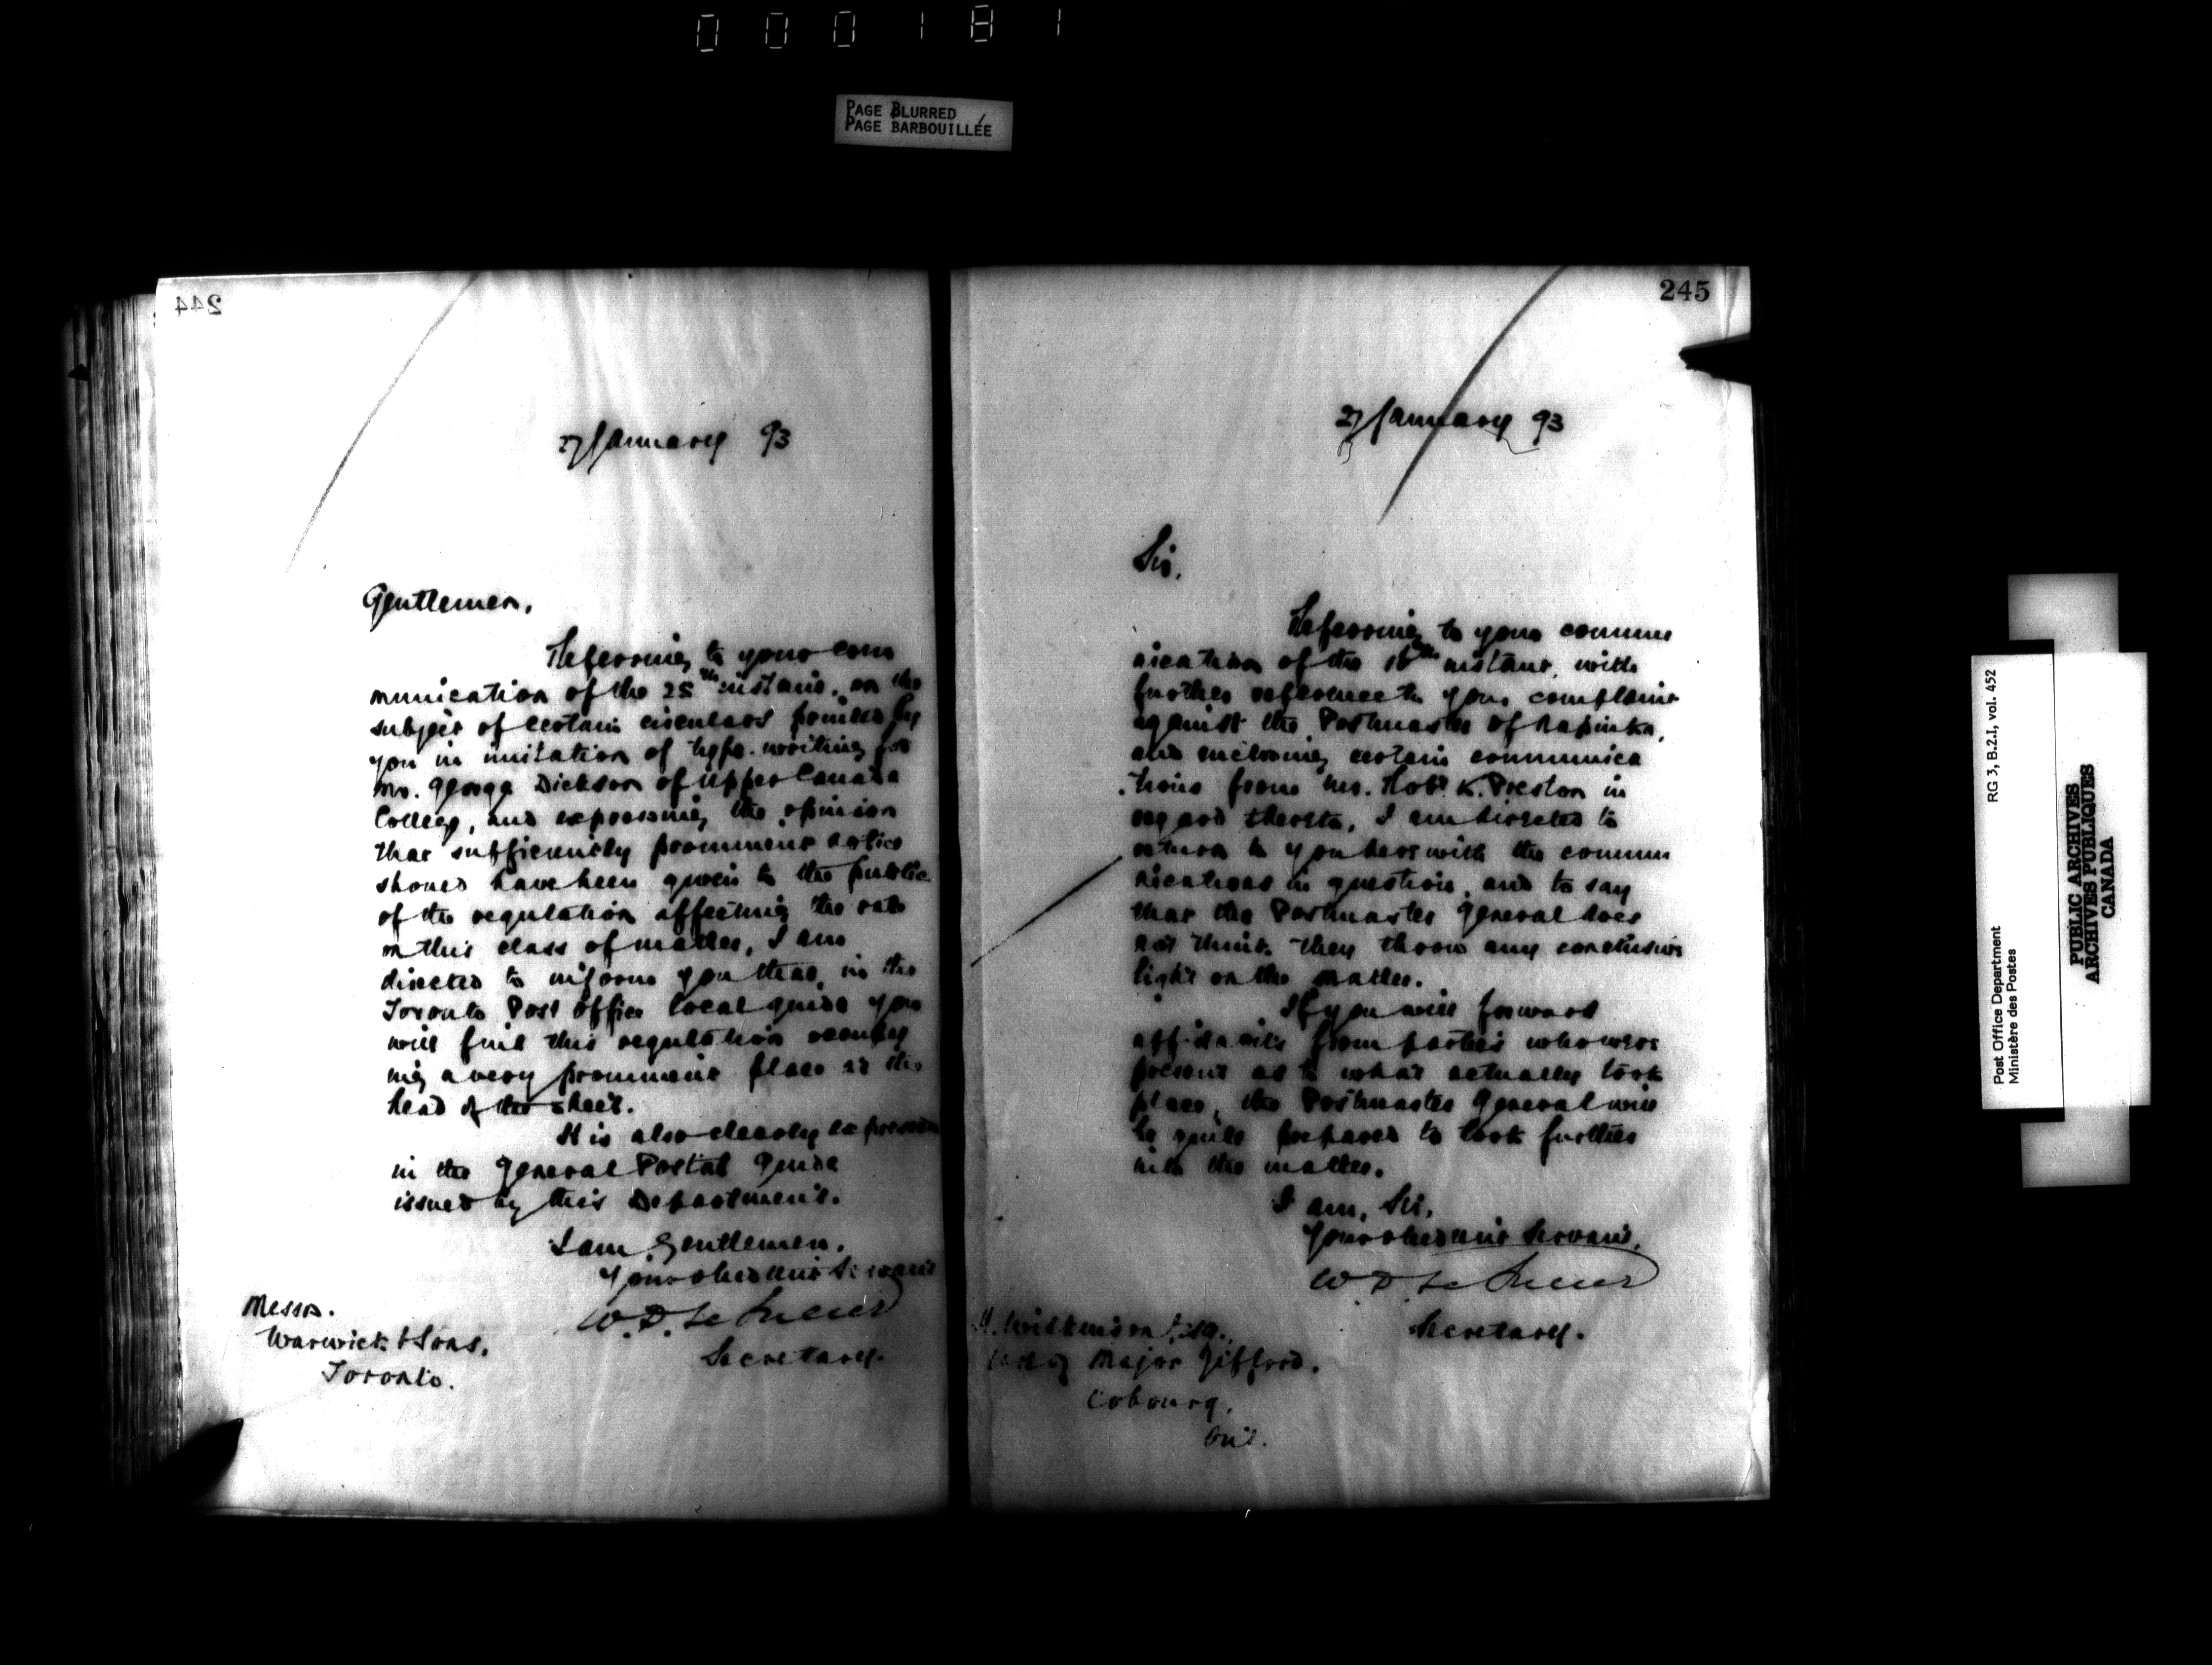 000181
PAGE BLURRED
PAGE BARBOUILLÉE
244
27 January 93
Gentlemen,
Referring to your com
munication of the 25th instant, on the
subject of certain circulars printed by
you in imitation of type-writing for
Mr. George Dickson of Upper Canada
College, and expressing the opinion
that sufficiently prominent notice
should have been given to the public
of the regulation affecting the rate
on this class of matter, I am
directed to inform you that, in the
Toronto Post Office local guide you
will find this regulation occupy
ing a very prominent place at the
head of the sheet.
It is also clearly expressed
in the General Postal Guide
issued by this Department.
I am, Gentlemen,
Your obedient Servant
W. D. LeSueur
Secretary.
Messrs.
Warwick & Sons,
Toronto.
245
27 January 93
Sir,
Referring to your commu
nication of the 18th instant, with
further reference to your complaint
against the Postmaster of Napinka,
and enclosing certain communica
tions from Mr. Robt. K. Preston in
regard thereto, I am directed to
return to you herewith the commu
nications in question, and to say
that the Postmaster General does
not think they throw any conclusive
light on the matter.
If you will forward
affidavits from parties who were
present as to what actually took
place, the Postmaster General will
be quite prepared to look further
into the matter.
I am, Sir,
Your obedient Servant,
W. D. LeSueur
Secretary.
H. Wilkinson, Esq.,
Care of Major Gifford,
Cobourg,
Ont.
RG 3, B.2.I, vol. 452
Post Office Department
Ministère des Postes
PUBLIC ARCHIVES
ARCHIVES PUBLIQUES
CANADA